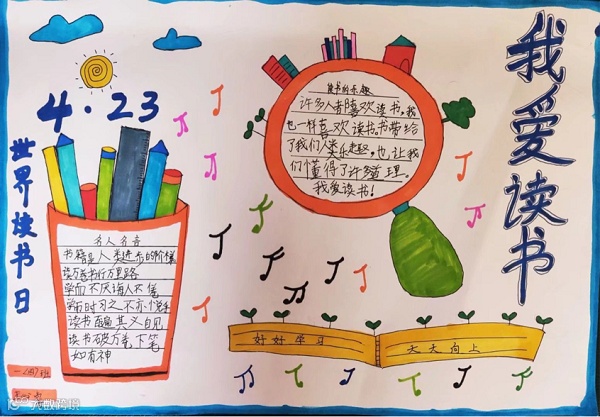 我爱读书
4.23
世界读书日
读书的乐趣
许多人都喜欢读书,我
也一样喜欢读书,书带给
了我们人类乐趣,也让我
们懂得了许多道理。
我爱读书!
名人名言
书籍是人类进步的阶梯
读万卷书行万里路
学而不厌诲人不倦
学而时习之不亦悦乎
读书百遍其义自见
读书破万卷下笔
如有神
好好学习
天天向上